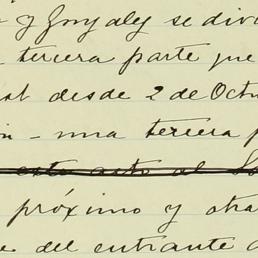 y Gonzalez se div
tercera parte que
desde 2 de Octu
- una tercera p
este acto al
próximo y otra
del entrante